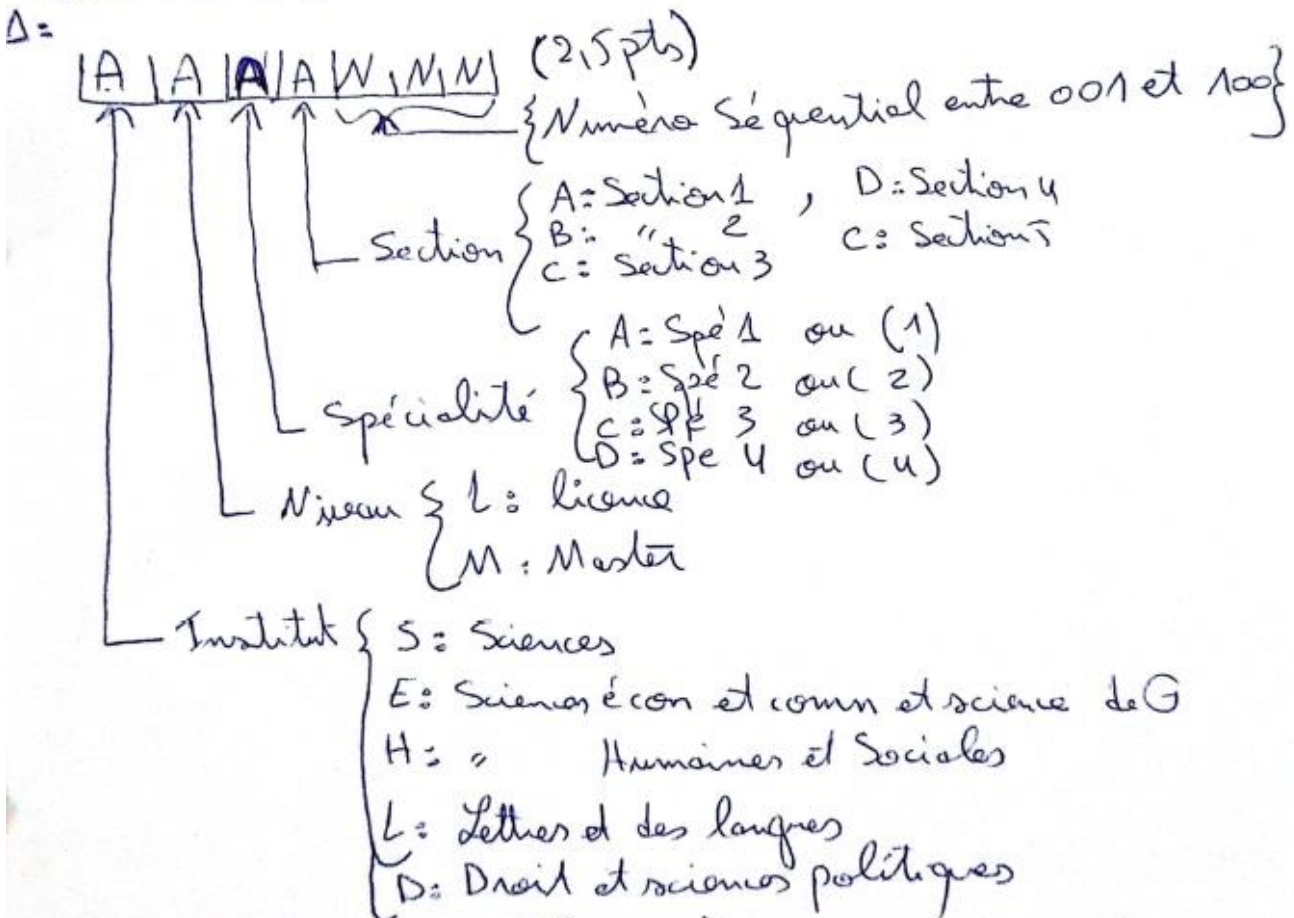 Δ =
|A|A|A|A|N|N|N| (2,5pts)
{Numéro Séquential entre 001 et 100}
Section { A = Section 1 , D = Section 4
B : " 2 C : Section 5
C = Section 3
Spécialité { A = Spé 1 ou (1)
B = Spé 2 ou (2)
C = Spé 3 ou (3)
D = Spe 4 ou (4)
Niveau { L : licence
M : Master
Institut { S : Sciences
E : Sciences écon et comm et science de G
H : " Humaines et Sociales
L : Lettres et des langues
D : Droit et sciences politiques